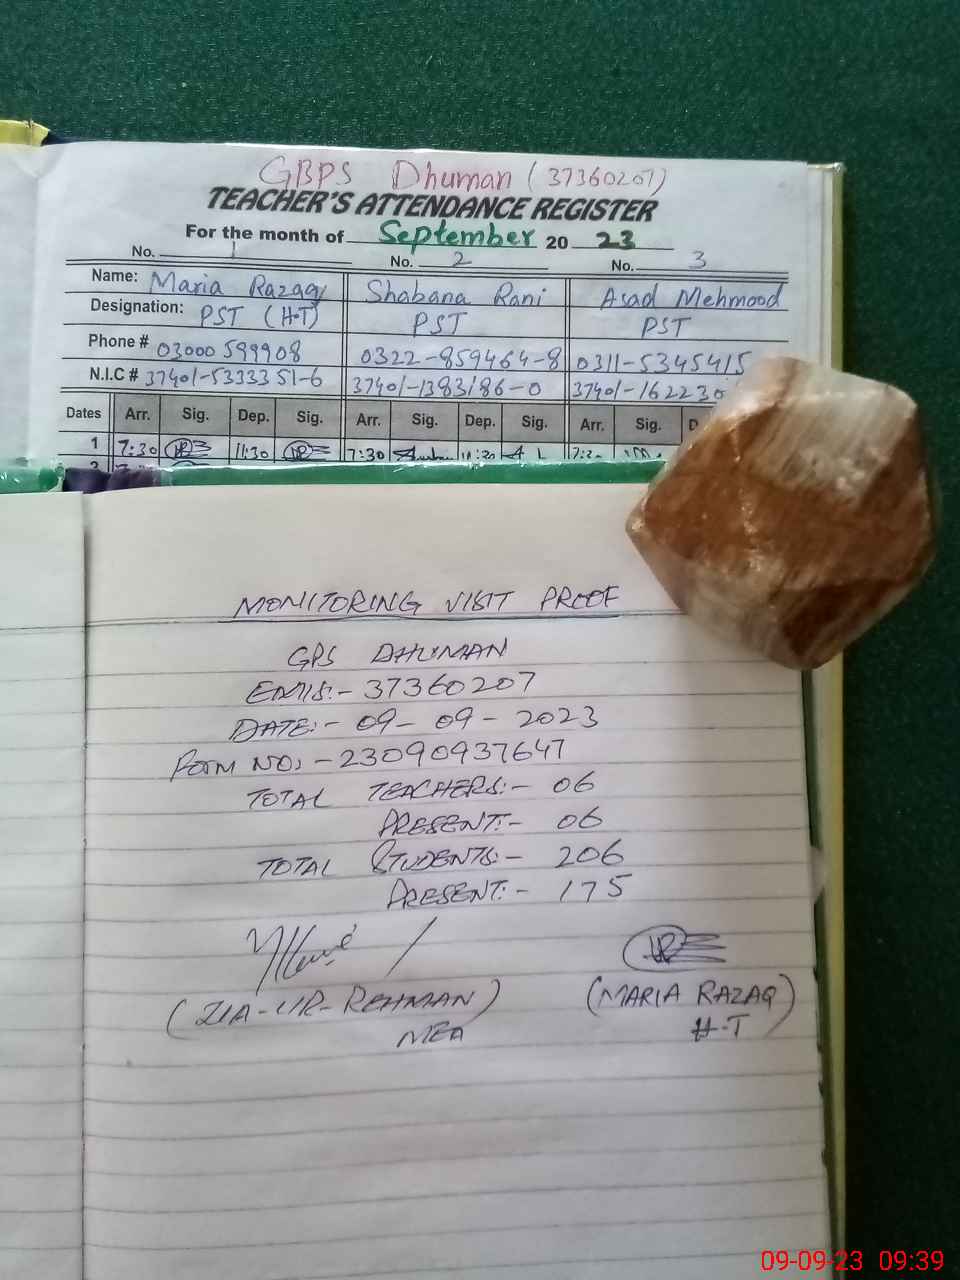 GBPS Dhuman (37360207)
TEACHER'S ATTENDANCE REGISTER
For the month of September 20 23
No. 1 No. 2 No. 3
Name: Maria Razaq Shabana Rani Asad Mehmood
Designation: PST (H.T) PST PST
Phone # 03000 599908 0322-859464-8 0311-5345415
N.I.C # 37401-5333351-6 37401-1383186-0 37401-162230
Dates Arr. Sig. Dep. Sig. Arr. Sig. Dep. Sig. Arr. Sig. D
1 7:30 11:30 7:30 11:30
MONITORING VISIT PROOF
GPS DHUMAN
EMIS:- 37360207
DATE:- 09-09-2023
Form NO:- 23090937647
TOTAL TEACHERS:- 06
PRESENT:- 06
TOTAL STUDENTS:- 206
PRESENT:- 175
(ZIA-UR-REHMAN) (MARIA RAZAQ)
MEA H.T
09-09-23 09:39